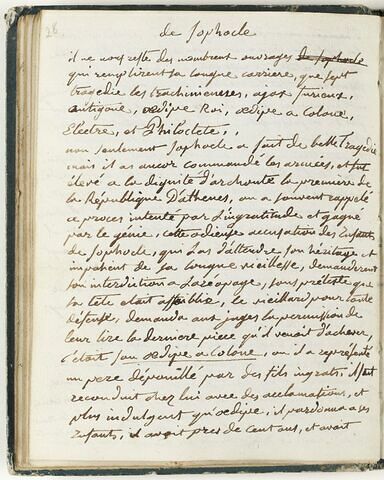 28
de Sophocle
il ne nous reste des nombreux ouvrages de Sophocle
qui remplirent sa longue carriere, que sept
tragedie les trachinienes, ajax furieux,
antigone, œdipe Roi, œdipe a Colone,
Electre, et Philoctete,
non seulement Sophocle a fait de belle Tragedie
mais il as encor commandé les armées, et fut
élevé a la dignité d'archonte la premiere de
la Republique D'athenes, on a souvent rappelé
ce proces intenté par L'ingratitude et gagné
par le génie, cette odieuse accusation des Enfants
de Sophocle, qui Las d'attendre son héritage et
impatient de sa longue vieillesse, demanderent
son interdiction a L'areopage, sous pretexte que
sa tête etait affaiblie, le vieillard pour toute
défense, demanda aux juges la permission de
leur lire la derniere piece qu'il venait d'achever,
c'etait son œdipe a Colone, ou il a représenté
un pere dépouillé par des fils ingrats. il fut
reconduit chez lui avec des acclamations, et
plus indulgent qu'œdipe, il pardonna a ses
Enfants, il avait pres de cent ans, et avait